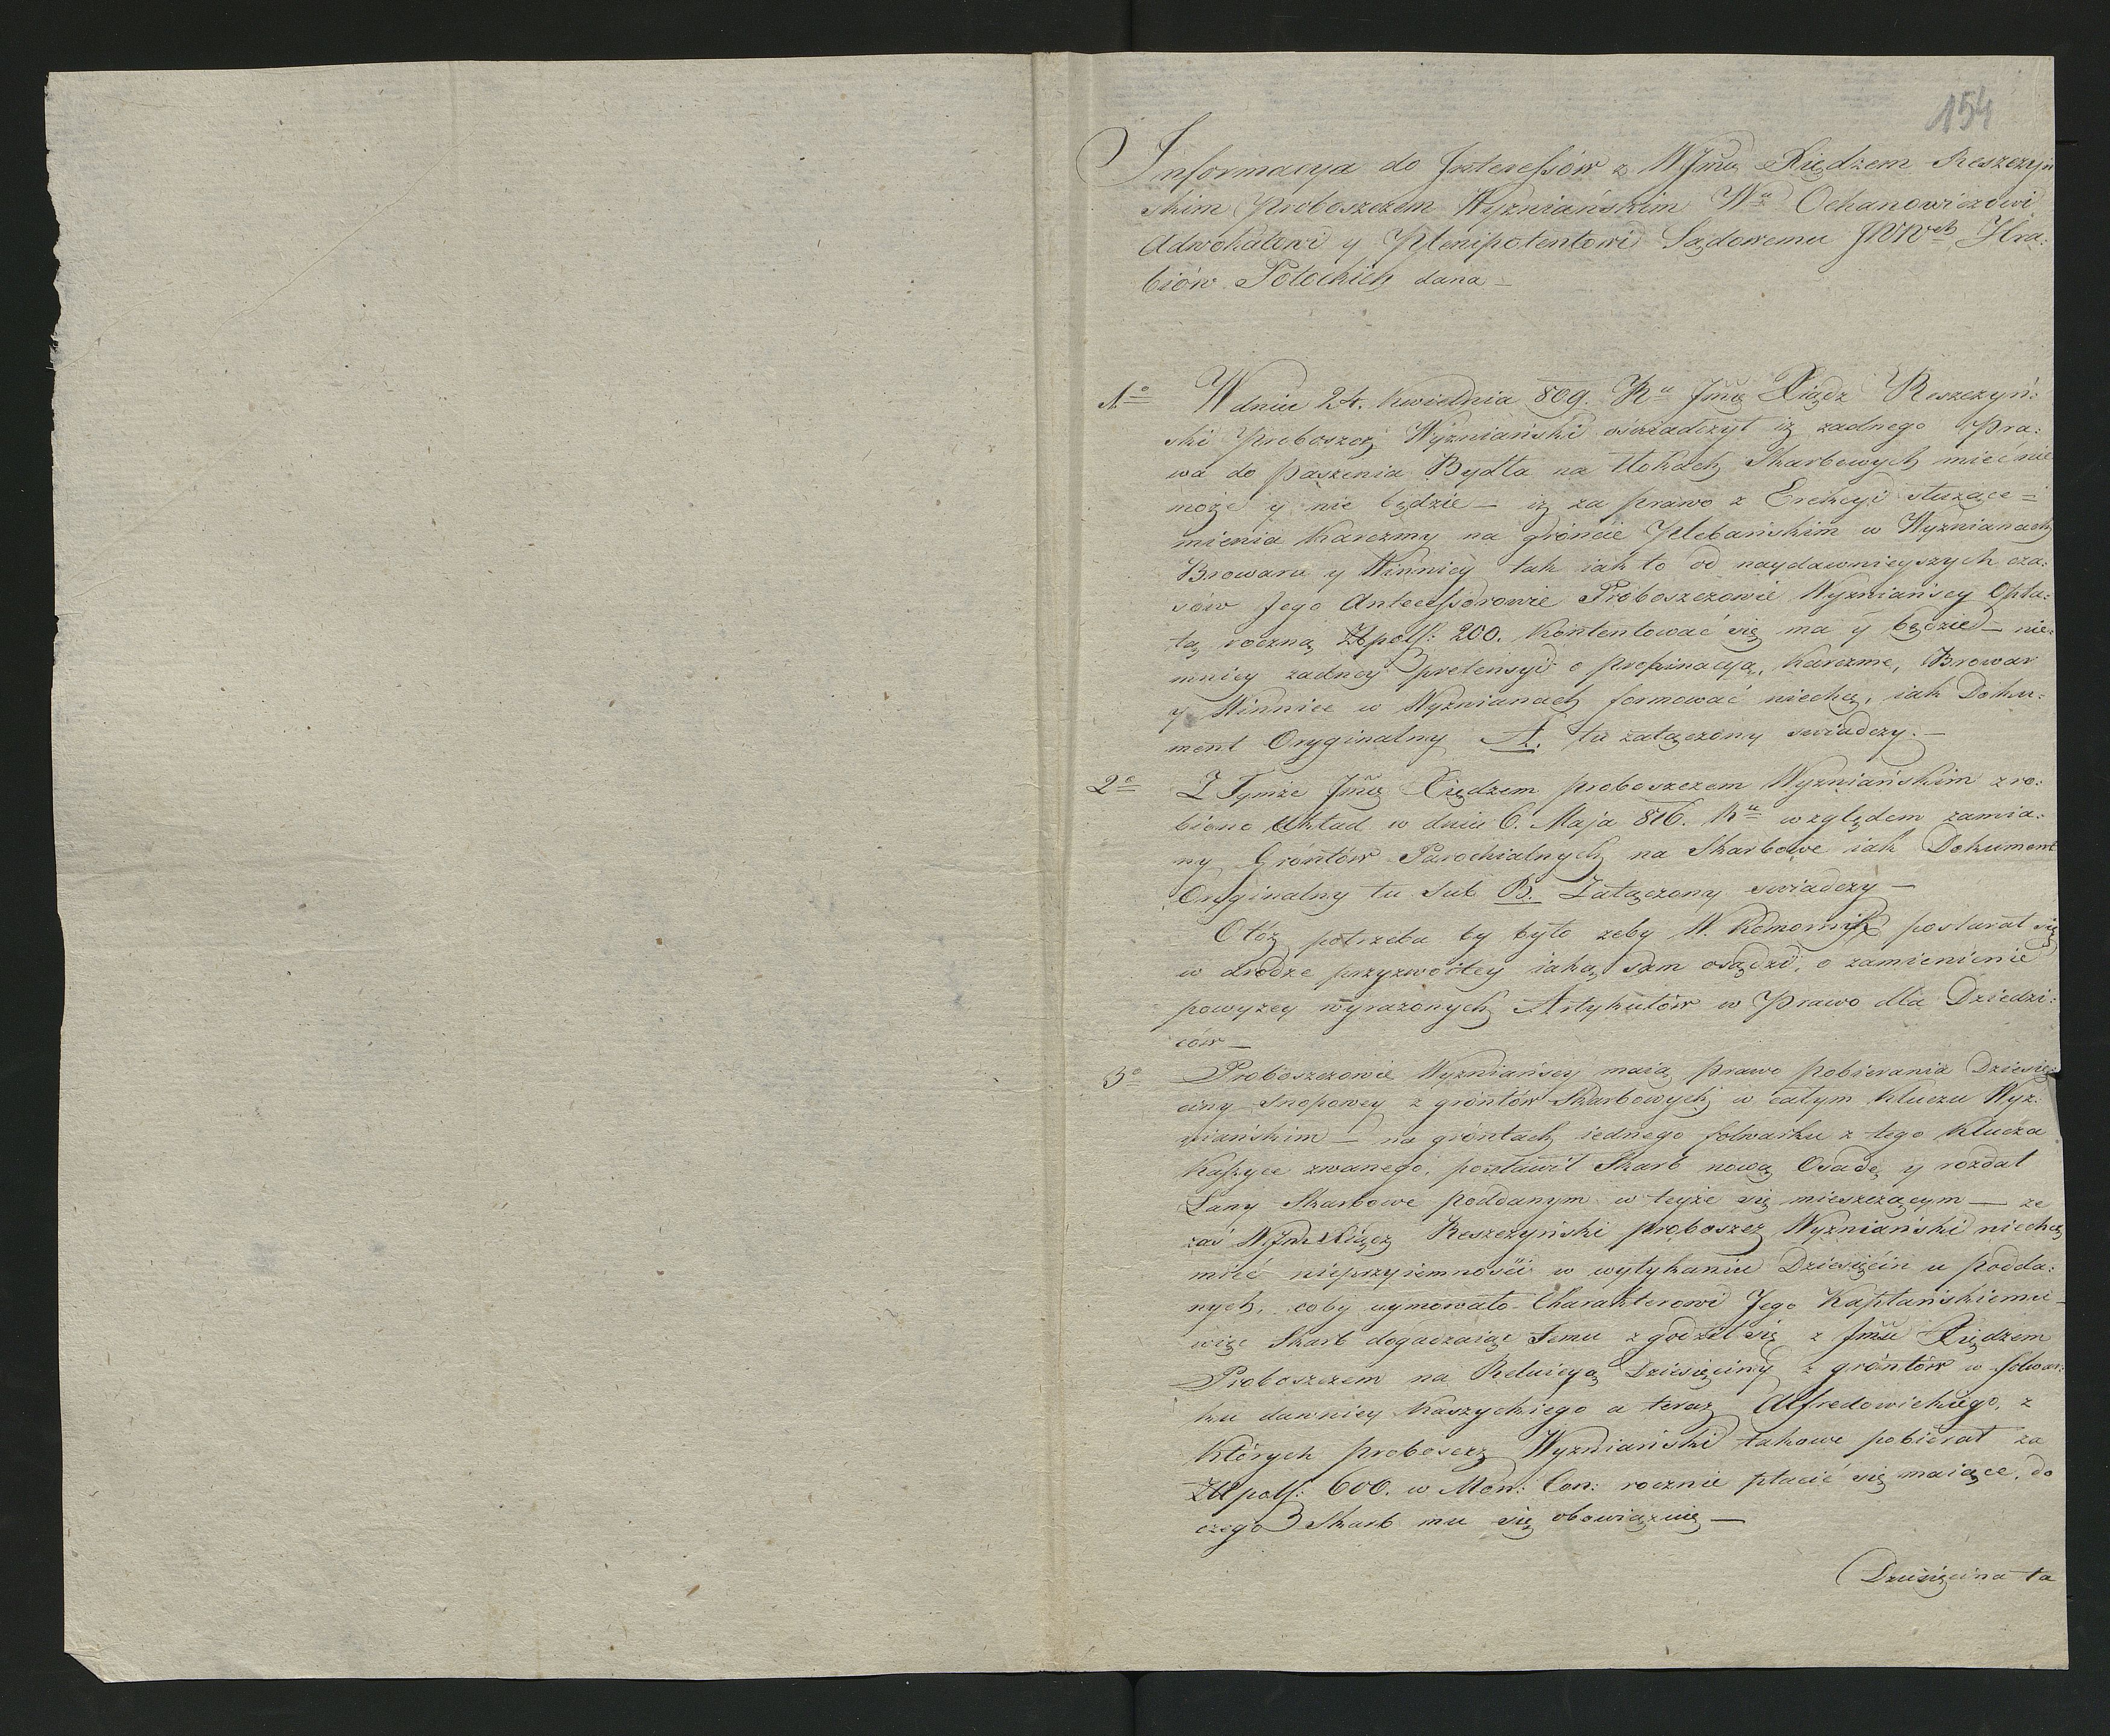 154
Informacya do Interessów z WJmę Xiędzem Reszczyń
skim Proboszczem Wyzniańskim Wu Ochanowiczowi
Adwokatowi y Plenipotentowi Sądowemu JWWch Hra:
biów Potockich dana —
1o W dniu 24. Kwietnia 809. Ru Jmć Xiądz Reszczyń:
ski Proboszcz Wyzniański oswiadczył iż zadnego Pra:
wa do paszenia Bydła na Łokach Skarbowych mieć nie
może y nie będzie — iż za prawo z Erekcyi służące =
mienia Karczmy na gróncie Plebańskim w Wyznianach
Browaru y Winnicy tak iak to od naydawnieyszych cza:
sów Jego Antecessorowie Proboszczowie Wyzniańscy Opła:
tą roczną Złpols: 200. kontentować się ma y będzie — nie:
mniey zadney pretensyi o propinacyą, karczmę, Browar
y Winnice w Wyznianach formować niechcę, iak Doku:
ment Oryginalny A. tu załączony swiadczy. —
2o Z Tymże Jmć Xiędzem proboszczem Wyzniańskim zro:
biono Układ w dniu 6. Maja 816. Ru względem zamia:
ny Gróntów Parochialnych na Skarbowe iak Dokument
Oryginalny tu sub B. Załączony swiadczy —
Otóz potrzeba by było zeby W. Komornik postarał się
w drodze przyzwoitey iaką sam osądzi, o zamienienie
powyzey wyrazonych Artykułów w Prawo dla Dziedzi:
ców —
3o Proboszczowie Wyzniańscy maią prawo pobierania Dziesię:
ciny Snopowey z gróntów Skarbowych w całym Kluczu Wyz:
niańskim — na gróntach iednego folwarku z tego Klucza
Kaszyce zwanego, postawił Skarb nową Osadę y rozdał
Łany Skarbowe poddanym w teyże się mieszczącym — ze
zaś WJmć Xiądz Reszczyński proboszcz Wyzniański niechcę
mieć nieprzyiemności w wytykaniu Dziesięcin u podda:
nych, coby uymowało Charakterowi Jego Kapłańskiemu —
więc Skarb dogadzaiąc Temu zgodził się z Jmć Xiędzem
Proboszczem na Reluicyą Dziesięciny z gróntów w folwar:
ku dawniey Kaszyckiego a teraz Alfredowickiego, z
Których proboszcz Wyzniański takowe pobierał za
Złpols: 600. w Mon: Con: rocznie płacić się maiące, do
czego Skarb mu się obowiązuię —
Dziesięcina ta